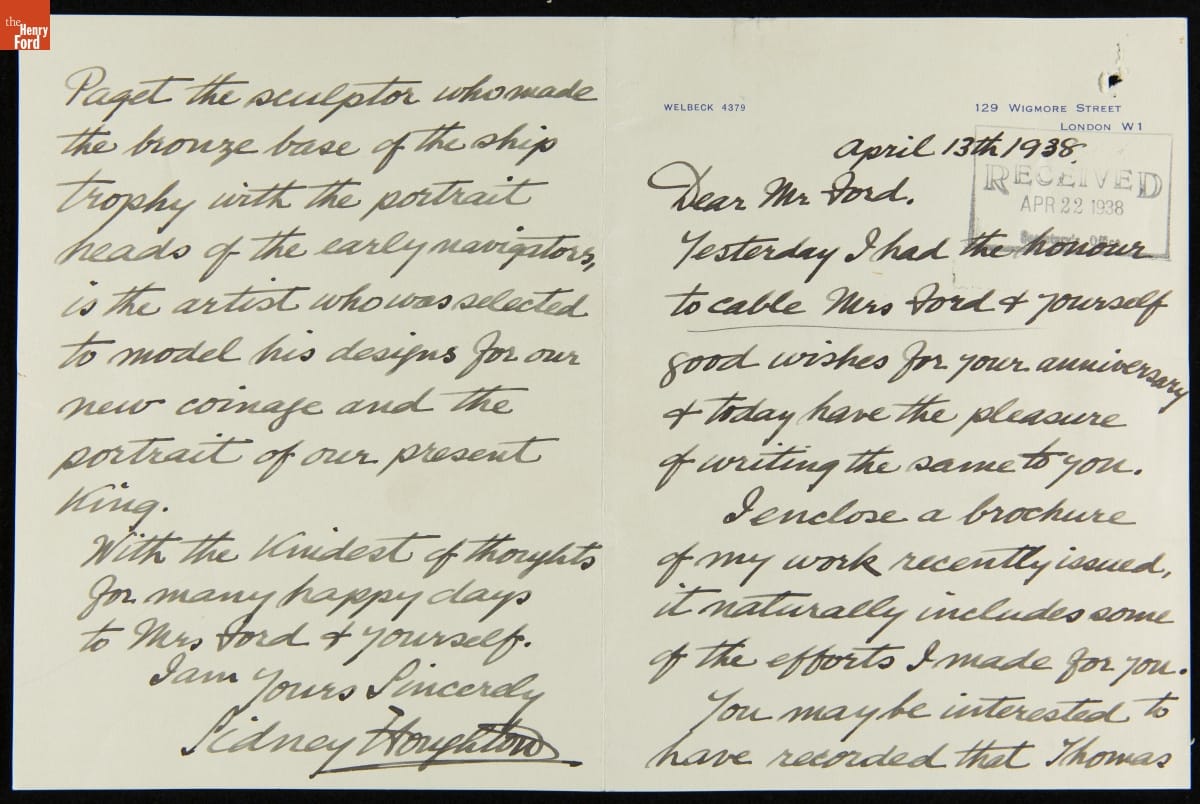 the
Henry
Ford
WELBECK 4379
129 WIGMORE STREET
LONDON W1
April 13th 1938.
RECEIVED
APR 22 1938
Office
Dear Mr Ford.
Yesterday I had the honour
to cable Mrs Ford & yourself
good wishes for your anniversary
& today have the pleasure
of writing the same to you.
I enclose a brochure
of my work recently issued,
it naturally includes some
of the efforts I made for you.
You may be interested to
have recorded that Thomas
Paget the sculptor who made
the bronze base of the ship
trophy with the portrait
heads of the early navigators,
is the artist who was selected
to model his designs for our
new coinage and the
portrait of our present
King.
With the Kindest of thoughts
for many happy days
to Mrs Ford & yourself.
I am
Yours Sincerely
Sidney Houghton